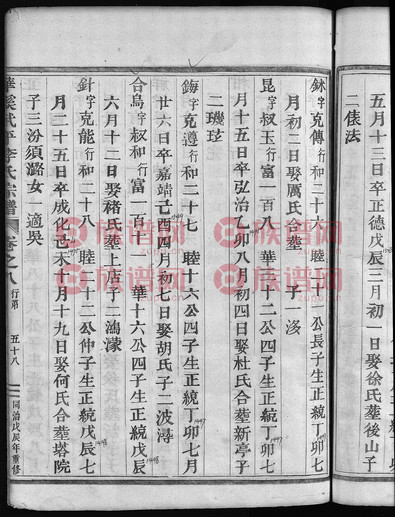 五月十三日卒正德戊辰三月初一日娶徐氏塟後山子
二倰法
銶字克傳行和二十六 睦十一公長子生正統丁卯七
月初二日娶厲氏合塟 子一淁
昆字叔玉行富一百八 華三十二公四子生正統丁卯八
月十五日卒弘治乙卯八月初四日娶杜氏合塟新亭子
二璣玜
鋂字克遵行和二十七 睦十六公四子生正統丁卯七月
廿六日卒嘉靖己酉四月初七日娶胡氏子二波潯
合烏字叔和行富一百十一 華十六公四子生正統戊辰
六月十二日娶褚氏塟上店子二鴻濛
針字克能行和二十八 睦二十二公仲子生正統戊辰七
月二十五日卒成化己未 月十九日娶何氏合塟塔院
子三汾須潞女一適吳
華溪武平李氏宗譜 卷之八 行第 五十八 同治戊辰年重修
族谱网
zupu.cn